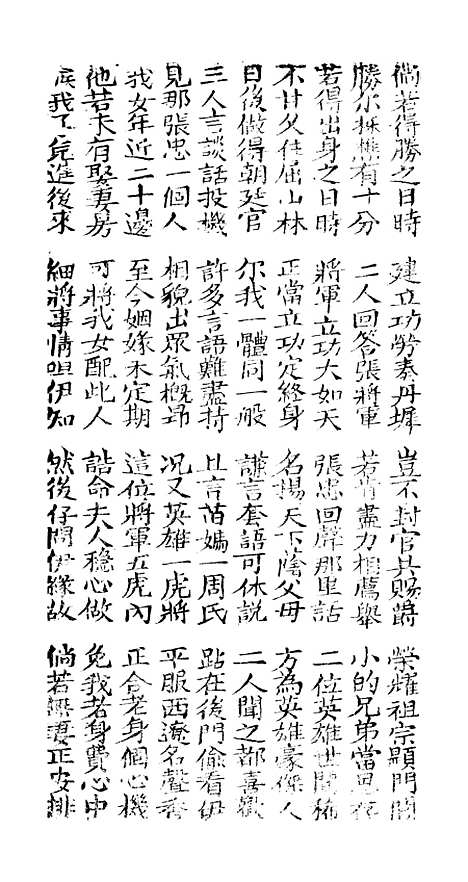 倘若得勝之日時 建立功勞奏丹墀 豈不封官共賜爵 榮耀祖宗顯門閭
勝尔採樵有十分 二人回答張將軍 若肯盡力相薦舉 小的兄弟當恩存
若得出身之日時 將軍立功大如天 張忠回聲那里話 二位英雄世間稀
不甘久住屈山林 正當立功定終身 名揚天下蔭父母 方為英雄豪傑人
日後做得朝廷官 尔我一體同一般 謙言套語可休説 二人聞之都喜歡
三人言談話投機 許多言語難盡持 且言苗媽一周氏 跕在後門偷看伊
見那張忠一個人 相貌出眾氣概昂 况又英雄一虎將 平服西遼名聲香
我女年近二十邊 至今姻緣未定期 這位將軍五虎內 正合老身個心機
他若未有娶妻房 可將我女配此人 誥命夫人穩心做 免我老身費心中
我進後來 細將事情呾伊知 然後仔問伊緣故 倘若無妻正安排